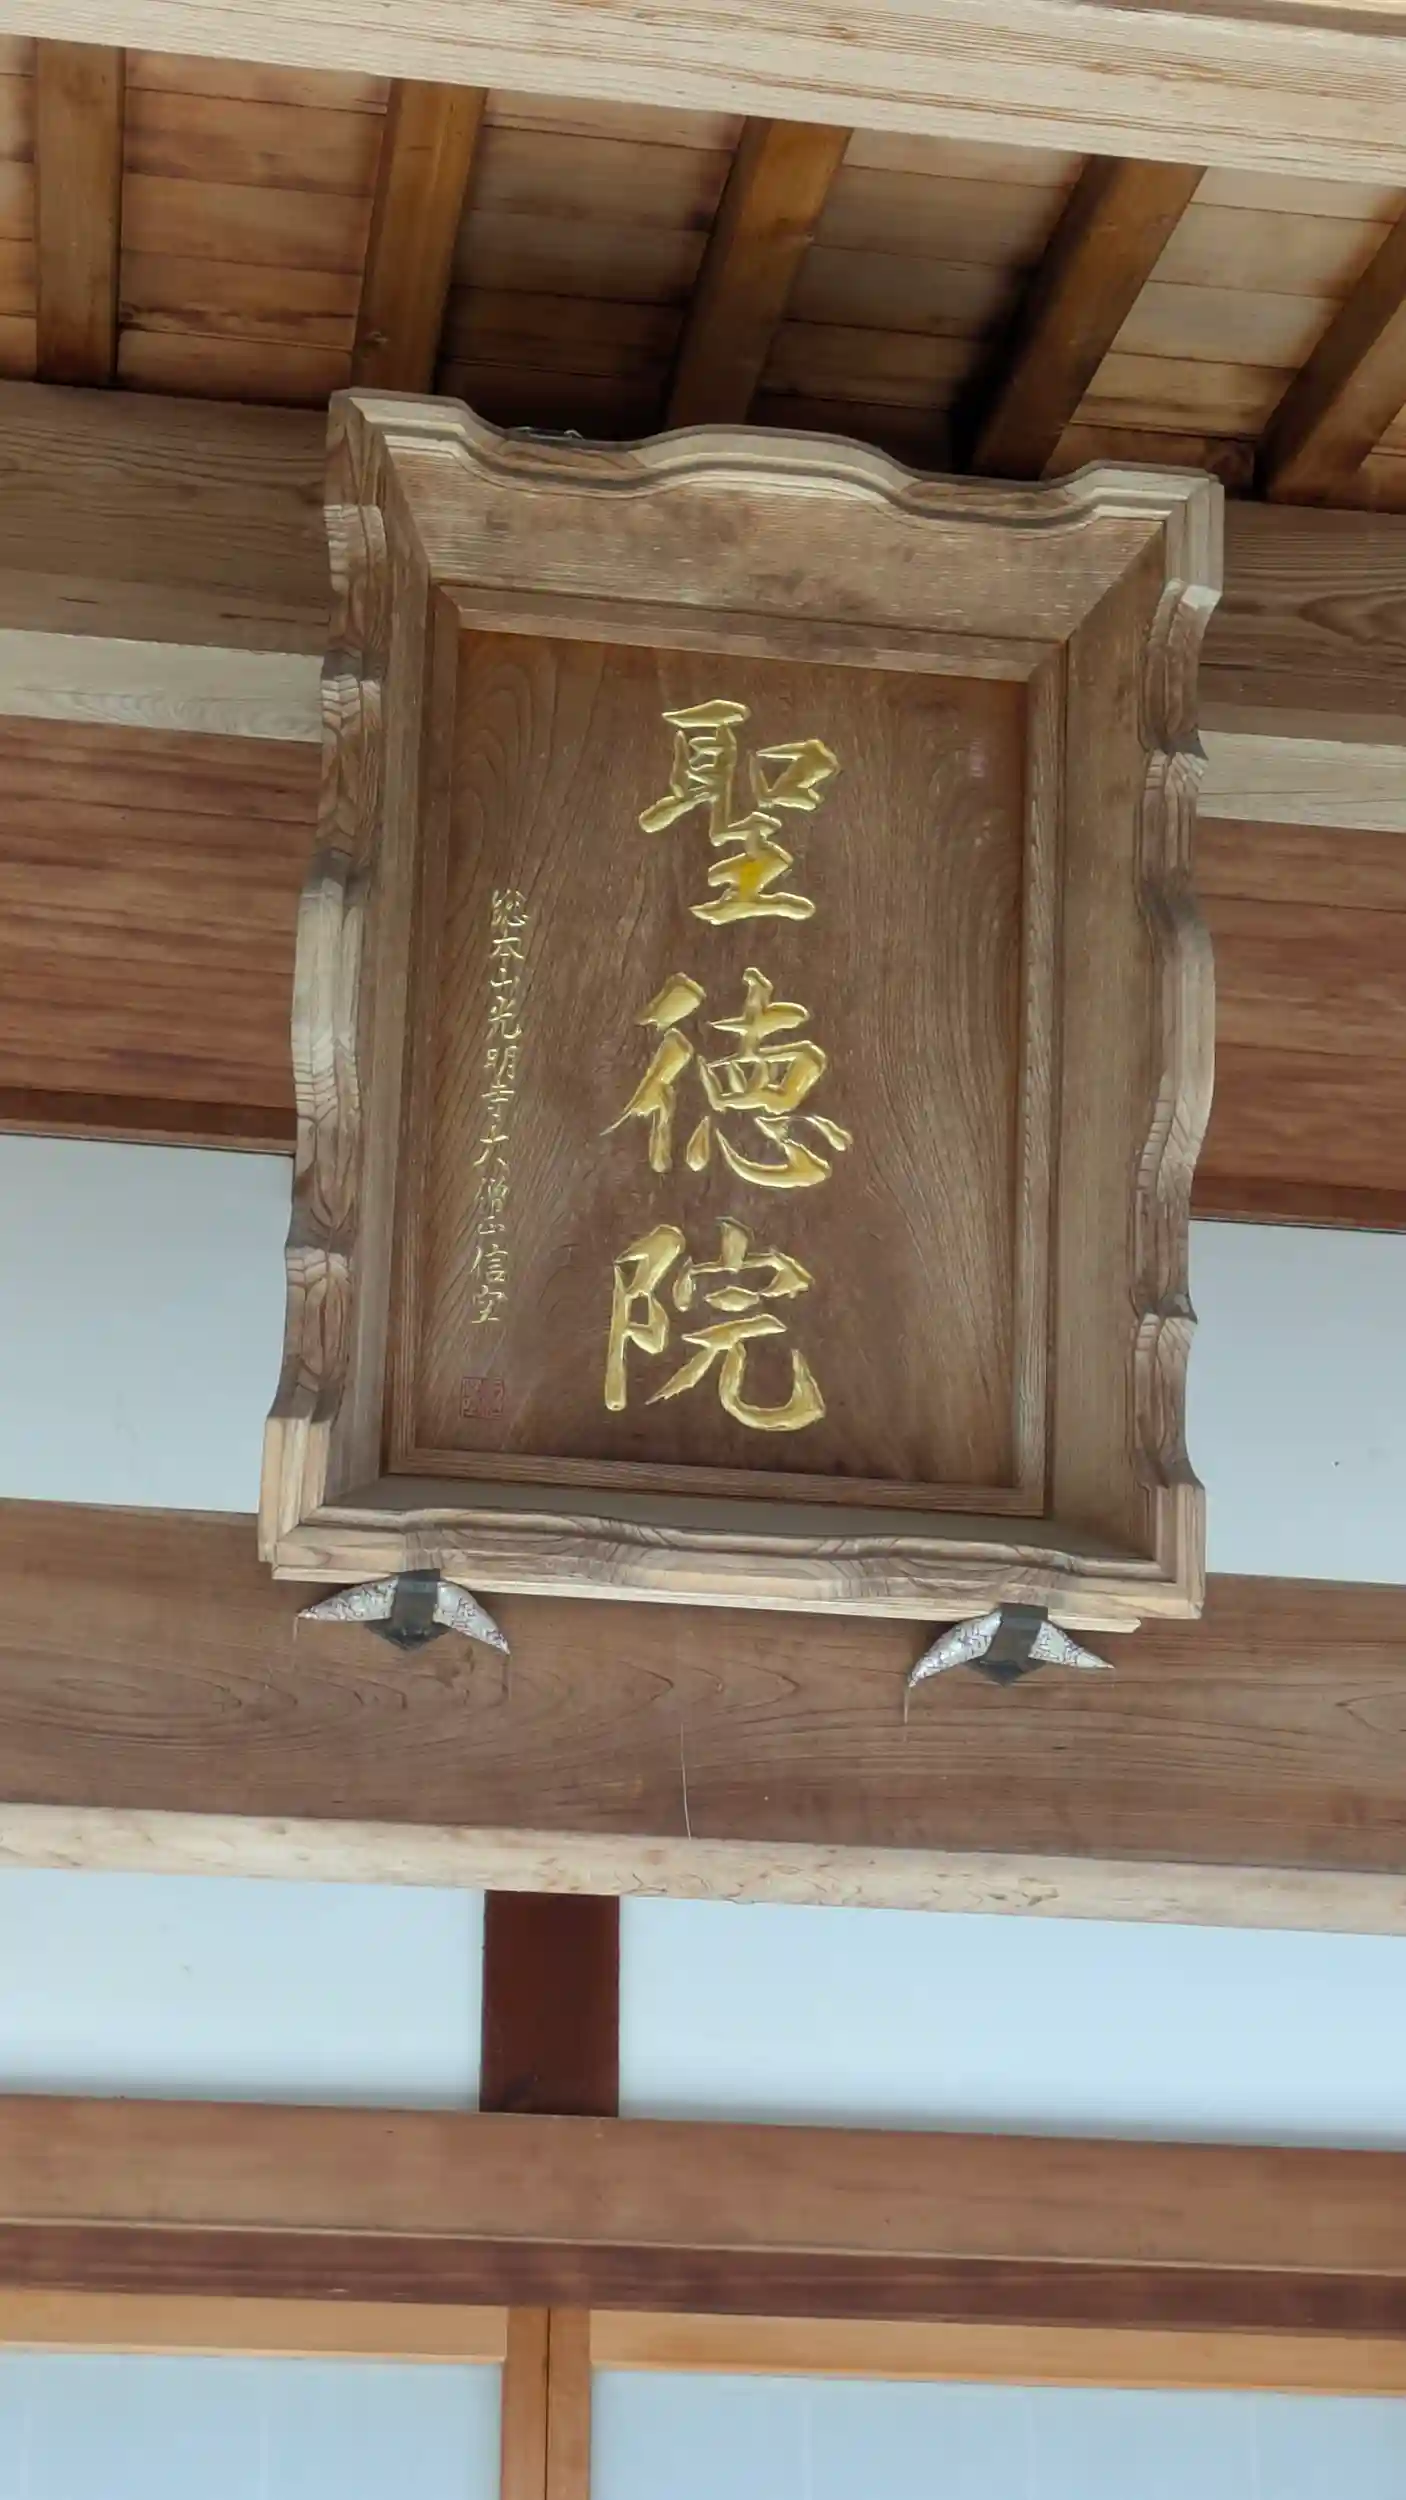 聖徳院
総本山光明寺大僧正信空